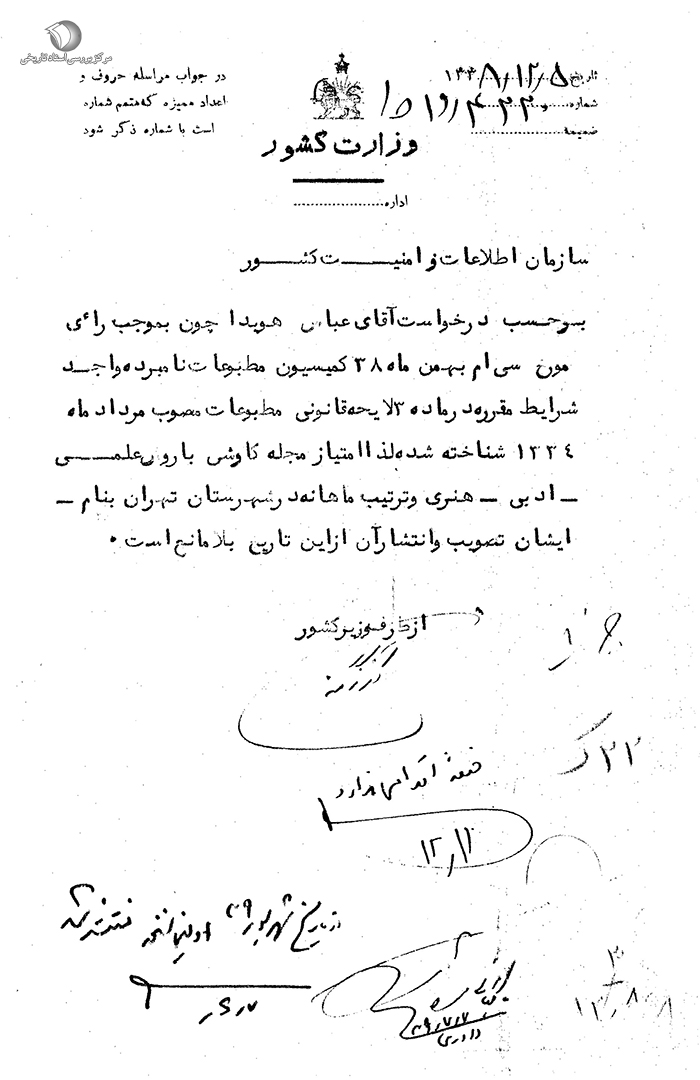 مرکز بررسی اسناد تاریخی
در جواب مراسله حروف و
اعداد ممیزه که متمم شماره
است با شماره ذکر شود
تاریخ ۱۳۳۸/۱۲/۵
شماره
ضمیمه
وزارت کشور
اداره
سازمان اطلاعات و امنیت کشور
بر حسب درخواست آقای عباس هویدا چون بموجب رأی
مورخ سی ام بهمن ماه ۳۸ کمیسیون مطبوعات نامبرده واجد
شرایط مقرره در ماده ۳ لایحه قانونی مطبوعات مصوب مرداد ماه
۱۳۳۴ شناخته شده لذا امتیاز مجله کاوش با روش علمی
ـ ادبی ـ هنری و ترتیب ماهانه در شهرستان تهران بنام ـ
ایشان تصویب و انتشار آن از این تاریخ بلامانع است .
از طرف وزیر کشور
فعلاً اقدامی ندارد
۱۲/۱۱
از تاریخ شهریور ۳۹ اولین